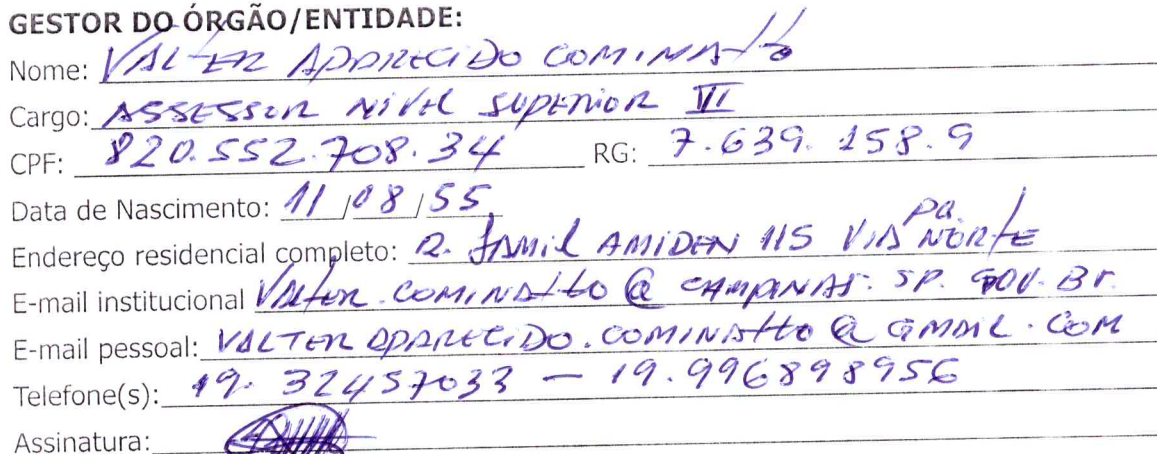 GESTOR DO ÓRGÃO/ENTIDADE:
Nome: VALTER APARECIDO COMINATTO
Cargo: ASSESSOR NIVEL SUPERIOR VI
CPF: 820.552.708.34 RG: 7.639.158.9
Data de Nascimento: 11/08/55
Endereço residencial completo: R. JAMIL AMIDEN 115 VIA pa. NORTE
E-mail institucional VALTER.COMINATTO@CAMPINAS.SP.GOV.BR
E-mail pessoal: VALTERAPARECIDO.COMINATTO@GMAIL.COM
Telefone(s): 19. 32457033 - 19.996898956
Assinatura: